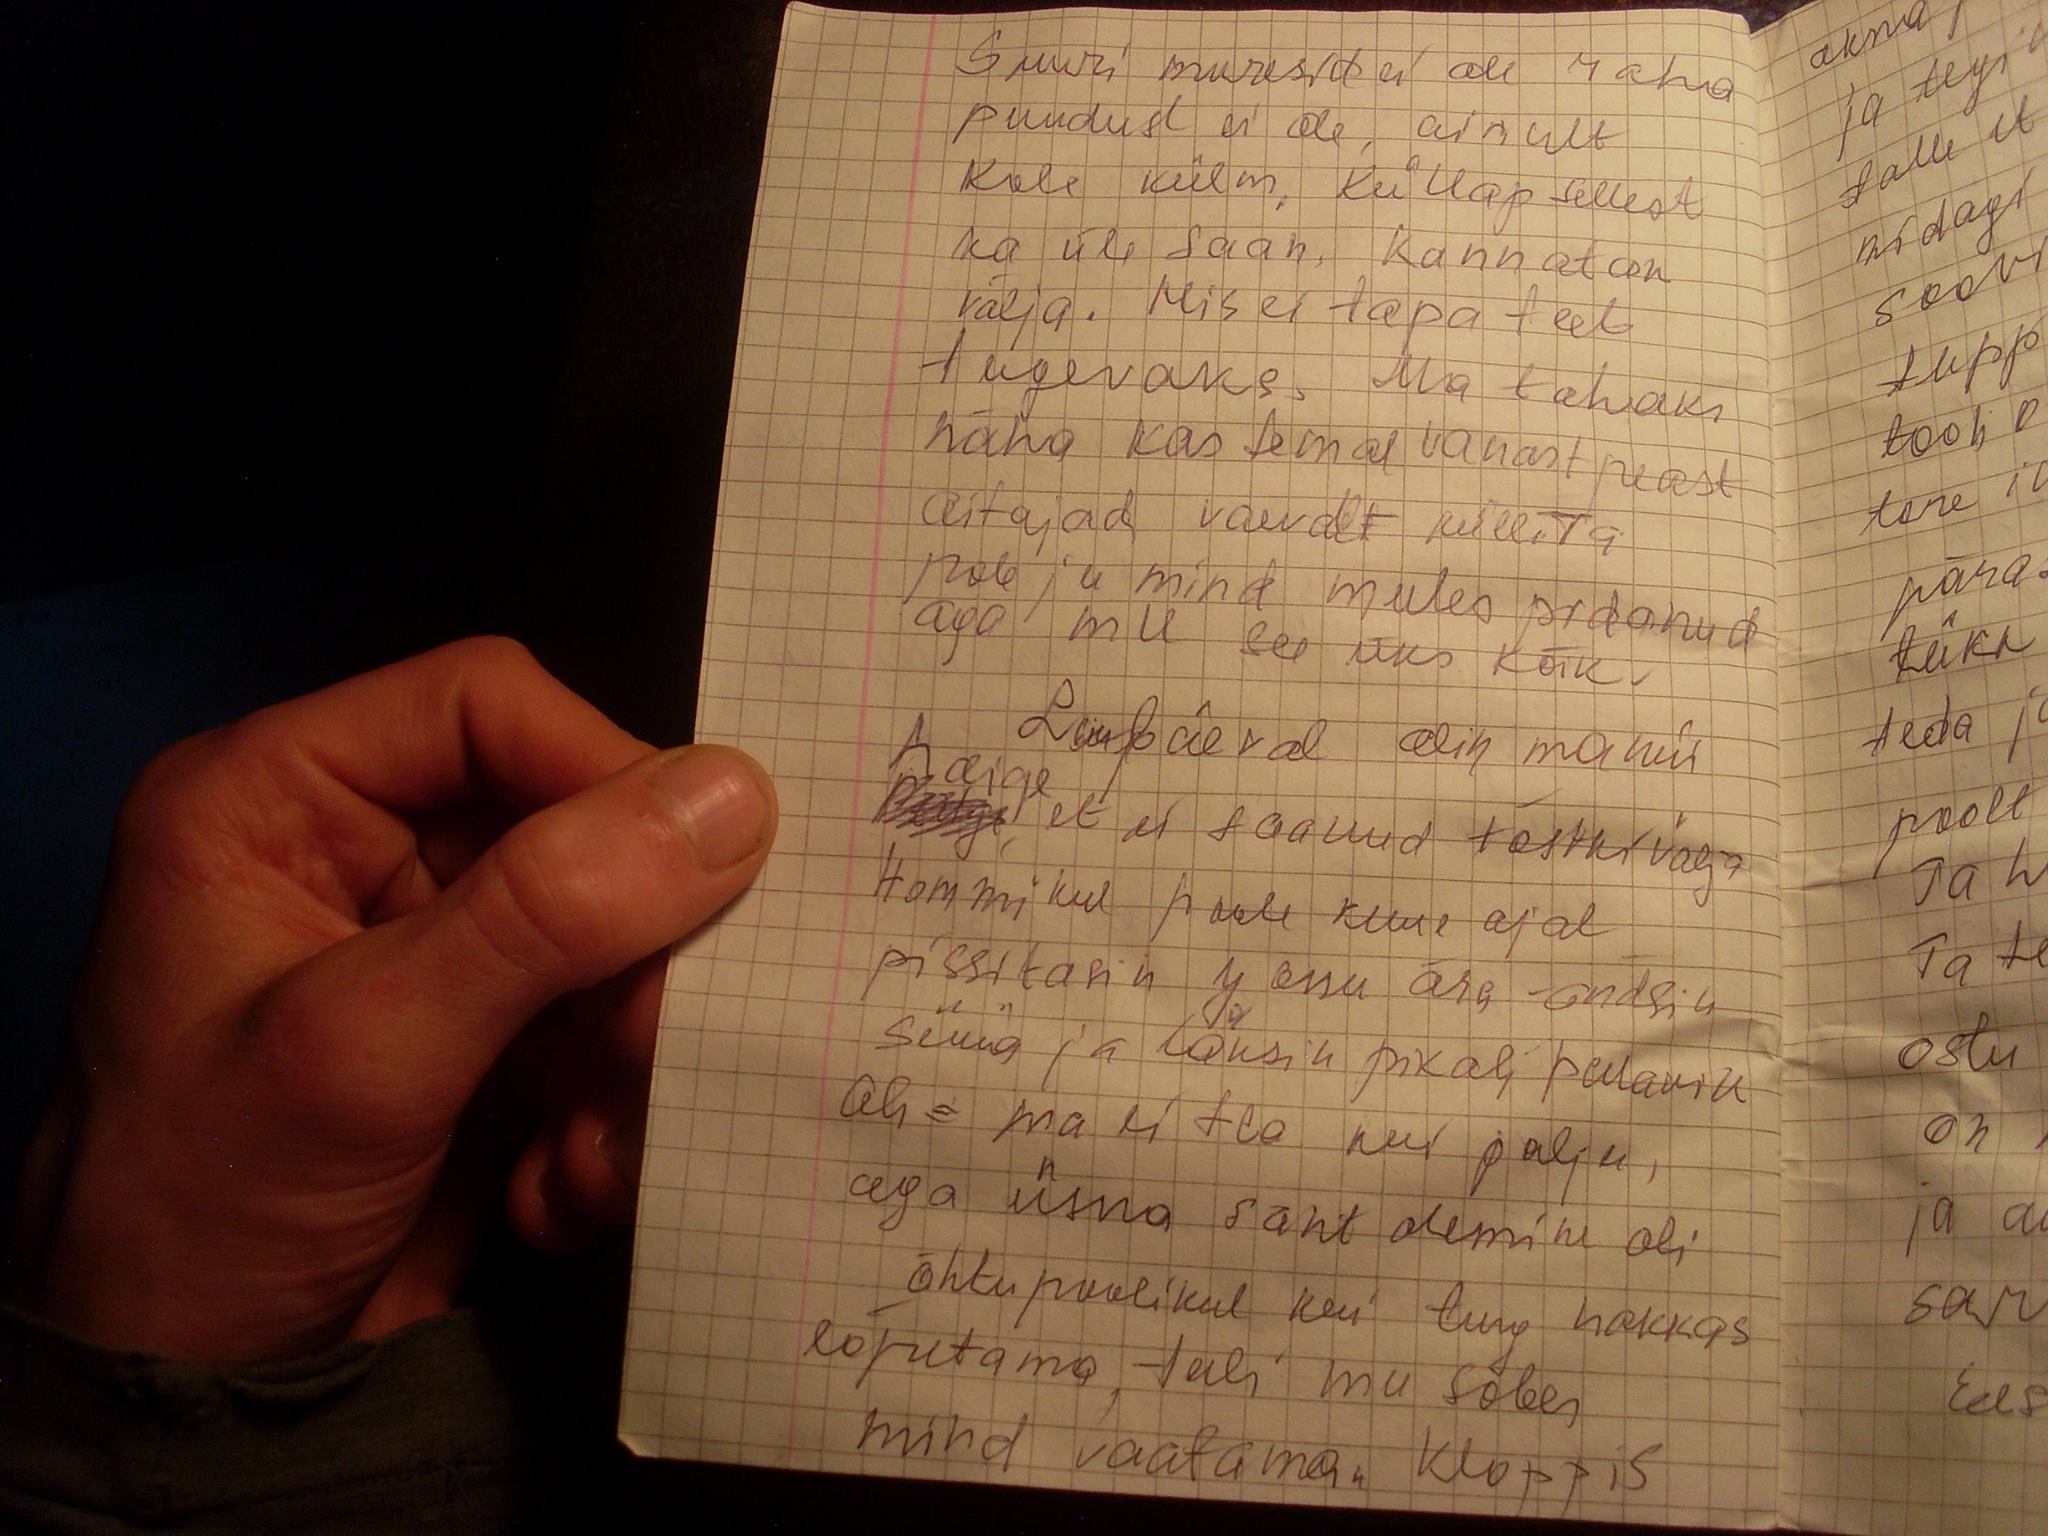 Suuri muresid ei ole raha
puudust ei ole, ainult
kole külm. Küllap sellest
ka üle saan, kannatan
välja. Mis ei tapa teeb
tugevaks. Ma tahaks
näha kas temal vanast peast
aitajad vaevalt küll. Ta
pole ju mind meeles pidanud
aga mul see üks kõik.
Laupäeval olin ma nii
haige
et ei saanud tõstki välja
Hommikul poole kuue ajal
pissitasin ära andsin
süüa ja läksin pikali palavik
oli = ma ei tea kui palju,
aga üsna sant olemine oli
õhtupoolikul kui turg hakkas
lõputama, tuli mu sõber
mind vaatama. Kloppis
akna
ja tegi
talle et
midagi
soovi
tupp
tooli
tore
pära
tükk
teda
poolt
Ta
Ta
ostu
on
ja